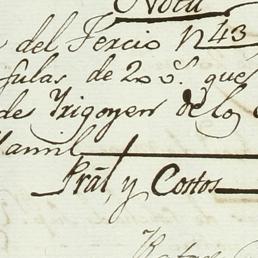 Nota
del Tercio N 43
fulas de 200 s. que
de Yrigoyen de los
Manil
Pral, y Costos